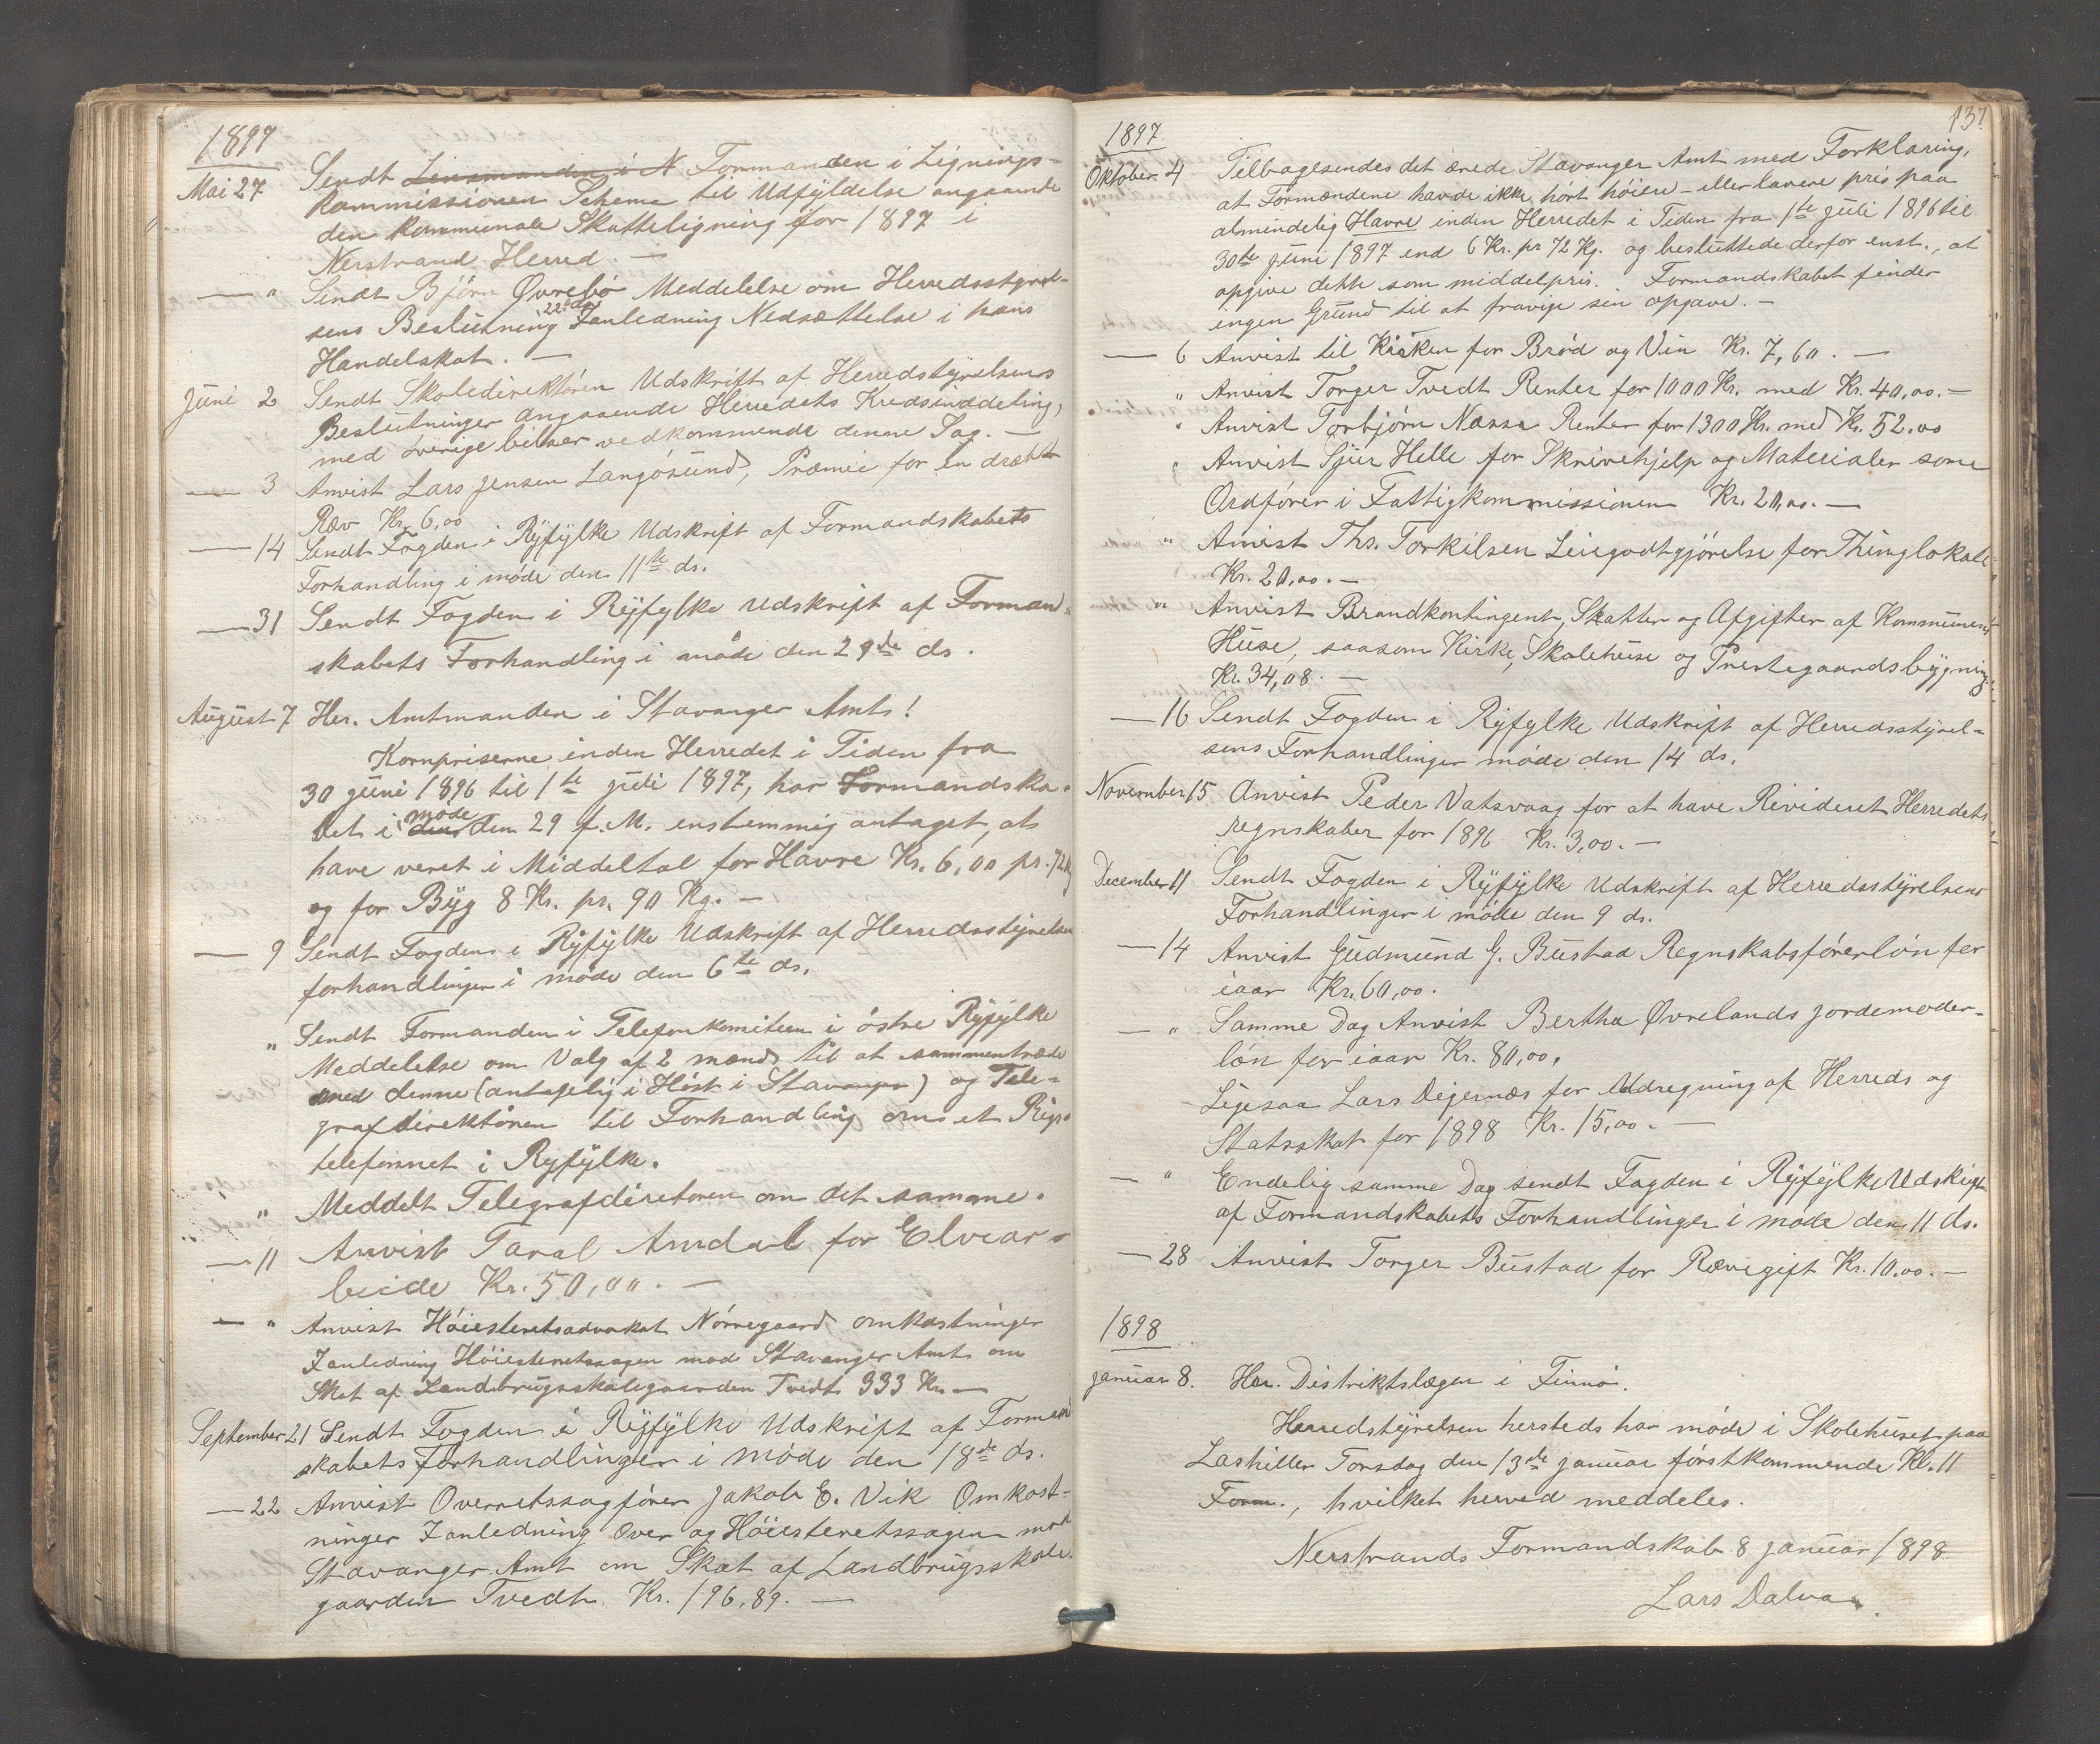 1897
Mai 27 Sendt Lensmanden i N Formanden i Lignings-
kommissionen Schema til Udfyldelse angaaende
den kommunale Skatteligning for 1897 i
Nerstrand Herred. —
— " Sendt Bjørn Øvrebø Meddelelse om Herredsstyrel-
sens Beslutning 22 ds Ianledning Nedsættelse i hans
Handelskat. —
Juni 2 Sendt Skoledirektøren Udskrift af Herredstyrelsens
Beslutninger angaaende Herredets Kredsinddeling,
med øvrige bilær vedkommende denne Sag. —
— 3 Anvist Lars Jensen Langøsund, Præmie for en dræbt
Ræv Kr. 6,00
— 14 Sendt Fogden i Ryfylke Udskrift af Formandskabets
Forhandling i møde den 11te ds.
— 31 Sendt Fogden i Ryfylke Udskrift af Forman-
skabets Forhandling i møde den 29de ds.
August 7 Her. Amtmanden i Stavanger Amt!
Kornpriserne inden Herredet i Tiden fra
30 juni 1896 til 1te juli 1897, har Formandska-
bet i møde den den 29 f. M. enstemmig antaget, at
have veret i Middeltal for Havre Kr. 6,00 pr. 72 Kg
og for Byg 8 Kr. pr. 90 Kg. —
— 9 Sendt Fogden i Ryfylke Udskrift af Herredsstyrelsen
forhandlinger i møde den 6te ds.
" Sendt Formanden i Telefonkomiteen i østre Ryfylke
Meddelelse om Valg af 2 mænd til at sammentræde
med denne (antagelig i Høst i Stavanger) og Tele-
grafdirektøren til Forhandling om et Rigs-
telefonnet i Ryfylke.
" Meddelt Telegrafdiretøren om det samme.
— 11 Anvist Taral Amdal for Elvear-
beide Kr. 50,00. —
— " Anvist Høiesteretsadvokat Nørregaard omkostninger
Ianledning Høiesteretssagen mod Stavanger Amt om
Skat af Landbrugsskolegaarden Tvedt 333 Kr. —
September 21 Sendt Fogden i Ryfylke Udskrift af Forman
skabets Forhandlinger i møde den 18de ds.
— 22 Anvist Overretssagfører Jakob E. Vik Omkost-
ninger Ianledning Over og Høiesteretssagen mod
Stavanger Amt om Skat af Landbrugsskole-
gaarden Tvedt Kr. 196,89. —
137
1897
Oktober 4 Tilbagesendes det ærede Stavanger Amt med Forklaring,
at Formændene havde ikke hørt høiere- eller lavere pris paa
almindelig Havre inden Herredet i Tiden fra 1te juli 1896 til
30te juni 1897 end 6 Kr. pr 72 Kg. og besluttede derfor enst., at
opgive dette som middelpris. Formandskabet finder
ingen Grund til at fravige sin opgave. —
— 6 Anvist til Kirken for Brød og Vin Kr. 7,60. —
" Anvist Torger Tvedt Renter for 1000 Kr. med Kr. 40,00. —
" Anvist Torbjørn Nassa Renter for 1300 Kr. med Kr. 52.00
" Anvist Sjur Helle for Skrivehjelp og Materialer som
Ordfører i Fattigkommissionen Kr. 20,00. —
" Anvist Ths. Torkilsen Leiegodtgjørelse for Thinglokale
Kr. 20,00. —
" Anvist Brandkontingent, Skatter og Afgifter af Kommunens
Huse, saasom Kirke, Skolehuse og Prestegaardsbygning
Kr. 34,08. —
— 16 Sendt Fogden i Ryfylke Udskrift af Herredsstyrel-
sens Forhandlinger møde den 14 ds.
November 15 Anvist Peder Vatsvaag for at have Rivideret Herredets
regnskaber for 1896 Kr. 3,00. —
December 11 Sendt Fogden i Ryfylke Udskrift af Herredsstyrelsens
Forhandlinger i møde den 9 ds.
— 14 Anvist Gudmund G. Bustad Regnskabsførerløn for
iaar Kr. 60,00.
— " Samme Dag Anvist Bertha Øvrelands jordemoder-
løn for iaar Kr. 80,00.
- Ligesaa Lars Dejernæs for Udregning af Herreds og
Statsskat for 1898 Kr. 15,00. —
— " Endelig samme Dag sendt Fogden i Ryfylke Udskrift
af Formandskabets Forhandlinger i møde den 11 ds.
— 28 Anvist Torger Bustad for Rævegift Kr. 10.00. —
1898
januar 8. Her. Distriktslægen i Finnø.
Herredstyrelsen hersteds har møde i Skolehuset paa
Lashiller Torsdag den 13de januar førstkommende Kl. 11
Form., hvilket herved meddeles.
Nerstrands Formandskab 8 januar 1898.
Lars Dalva